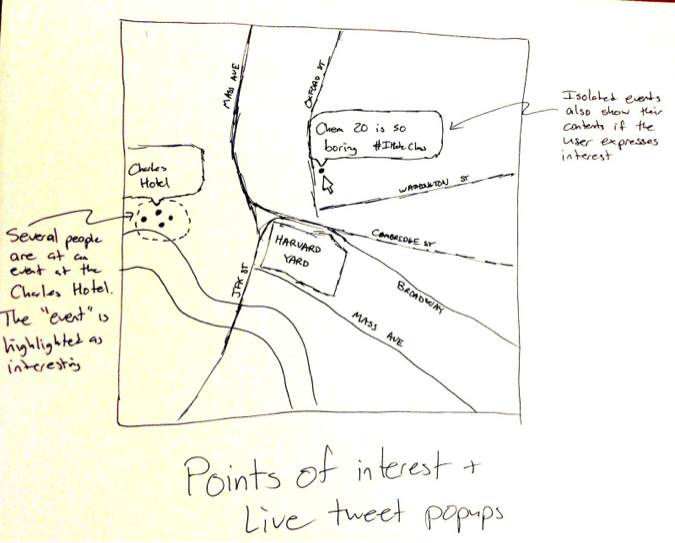 MASS AVE
OXFORD ST
Chem 20 is so
boring #IHateClass
Isolated events
also show their
contents if the
user expresses
interest
Charles
Hotel
WASHINGTON ST
Several people
are at an
event at the
Charles Hotel.
The "event" is
highlighted as
interesting
HARVARD
YARD
CAMBRIDGE ST
JFK ST
BROADWAY
MASS AVE
Points of interest +
Live tweet popups